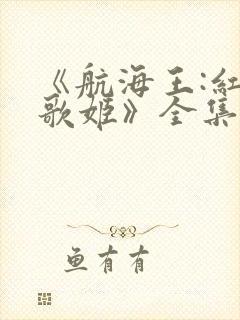 《航海王:红
歌姬》全集
鱼有有